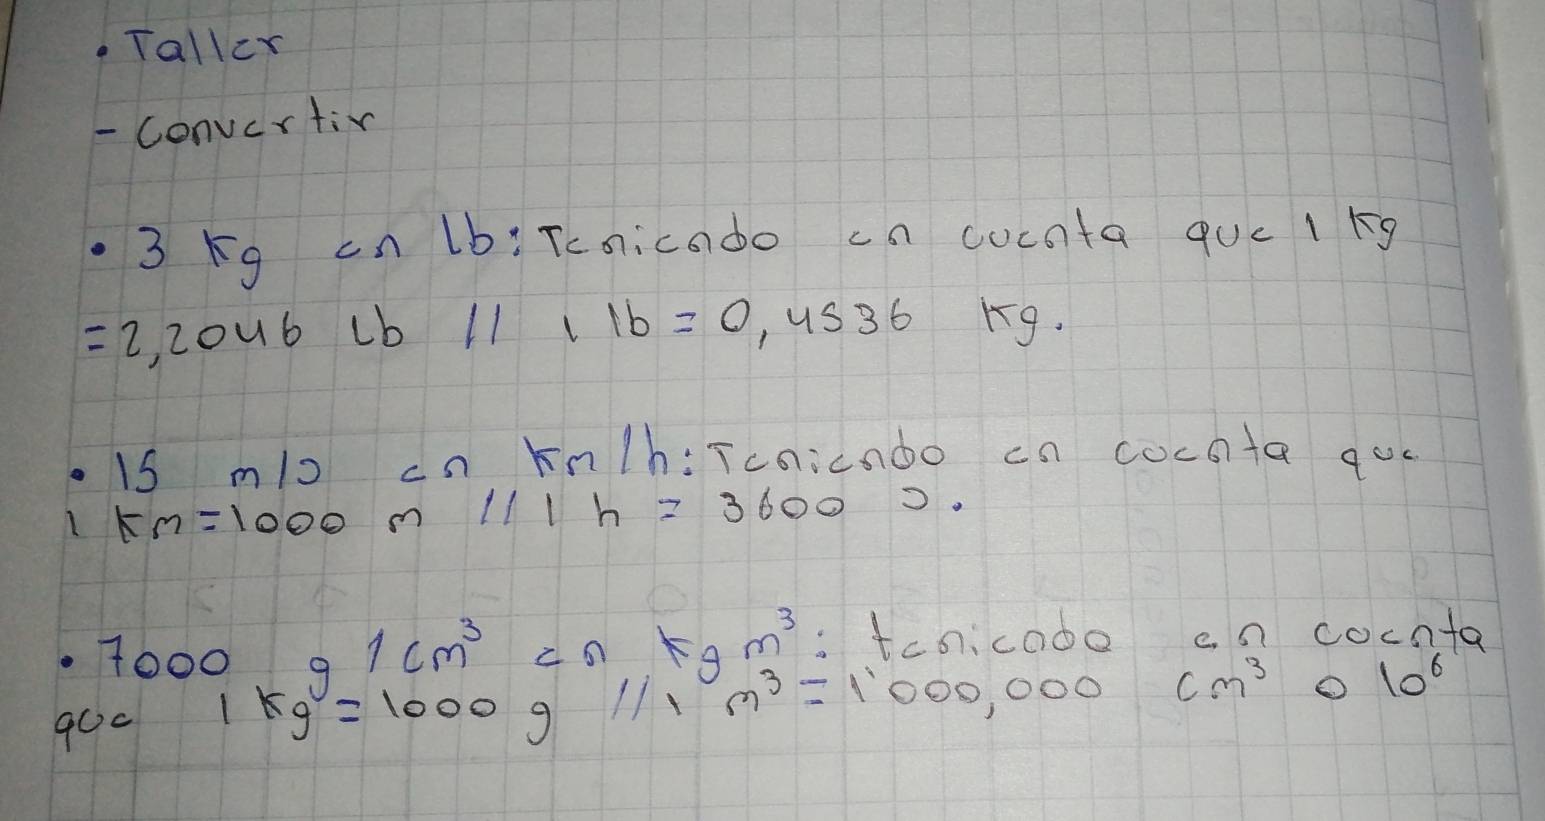 • Taller
- Convertir
• 3 Kg en lb: Teniendo en cuenta que 1 Kg
= 2,2046 Lb // 1 lb = 0,4536 Kg.
• 15 m/s en Km/h: Teniendo en cuenta que
1 Km = 1000 m // 1 h = 3600 s.
• 7000 g/cm³ en Kg m³: teniendo en cuenta
que 1 Kg = 1000 g // 1 m³ = 1'000,000 cm³ o 10⁶